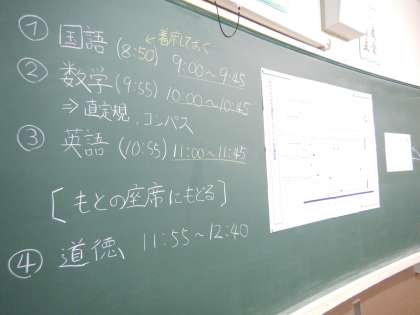 ←着席しておく
① 国語 (8:50) 9:00～9:45
② 数学 (9:55) 10:00～10:45
⇒ 直定規、コンパス
③ 英語 (10:55) 11:00～11:45
[もとの座席にもどる]
④ 道徳 11:55～12:40